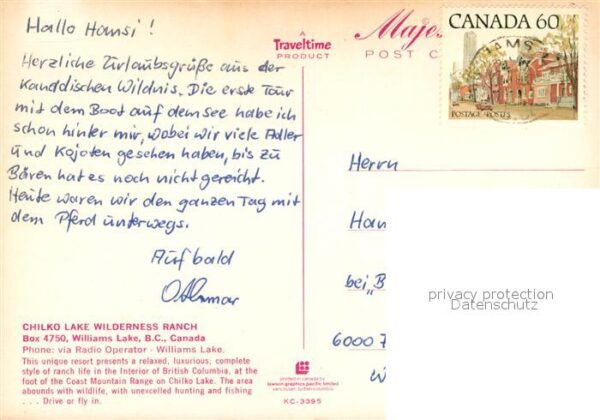 Hallo Hansi!
Herzliche Urlaubsgrüße aus der
kanadischen Wildnis. Die erste Tour
mit dem Boot auf dem See habe ich
schon hinter mir, wobei wir viele Adler
und Kojoten gesehen haben, bis zu
Bären hat es noch nicht gereicht.
Heute waren wir den ganzen Tag mit
dem Pferd unterwegs.
Auf bald
Othmar
CHILKO LAKE WILDERNESS RANCH
Box 4750, Williams Lake, B.C., Canada
Phone: via Radio Operator - Williams Lake.
This unique resort presents a relaxed, luxurious, complete
style of ranch life in the Interior of British Columbia, at
the foot of the Coast Mountain Range on Chilko Lake. The area
abounds with wildlife, with unexcelled hunting and fishing
. . . Drive or fly in.
A
Traveltime
PRODUCT
Majes
POST C
CANADA 60
POSTAGE·POSTES
IAMS
Herrn
Han
bei „B
6000 7
W
privacy protection
Datenschutz
printed in canada by
lawson graphics pacific limited
vancouver, british columbia
KC-3395